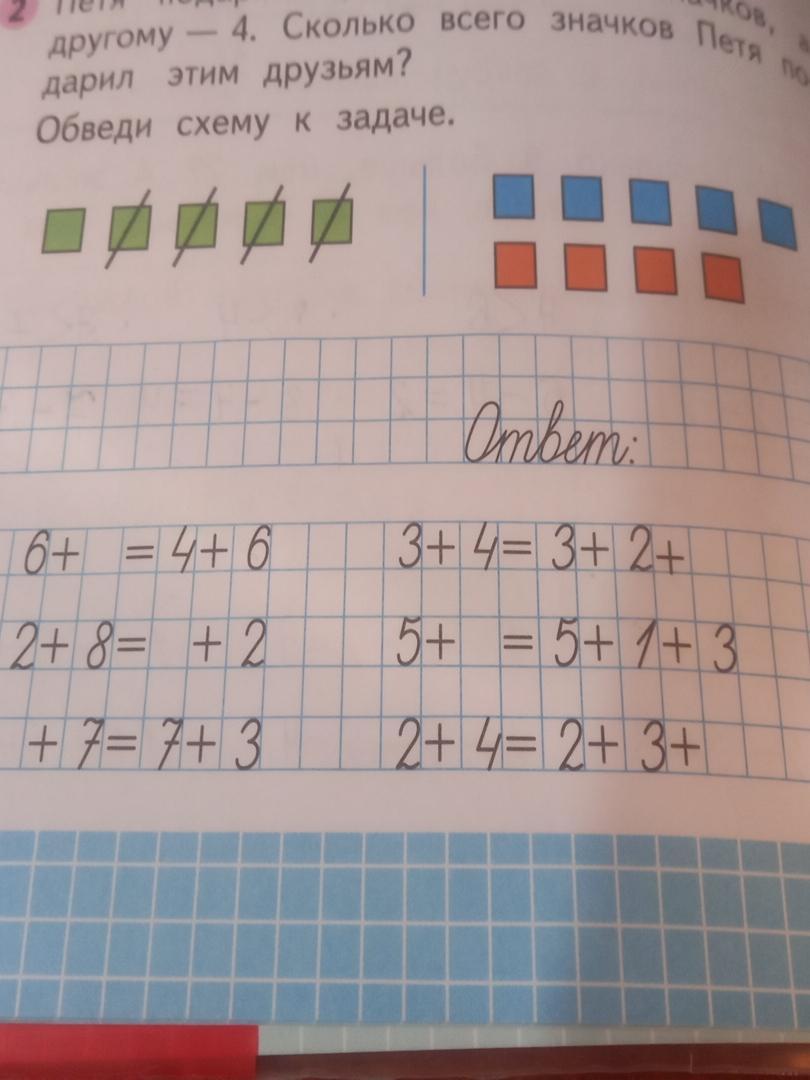 2 Петя
другому — 4. Сколько всего значков Петя по
дарил этим друзьям?
Обведи схему к задаче.
Ответ:
6+ = 4+ 6 3+ 4= 3+ 2+
2+ 8= + 2 5+ = 5+ 1+ 3
+ 7= 7+ 3 2+ 4= 2+ 3+